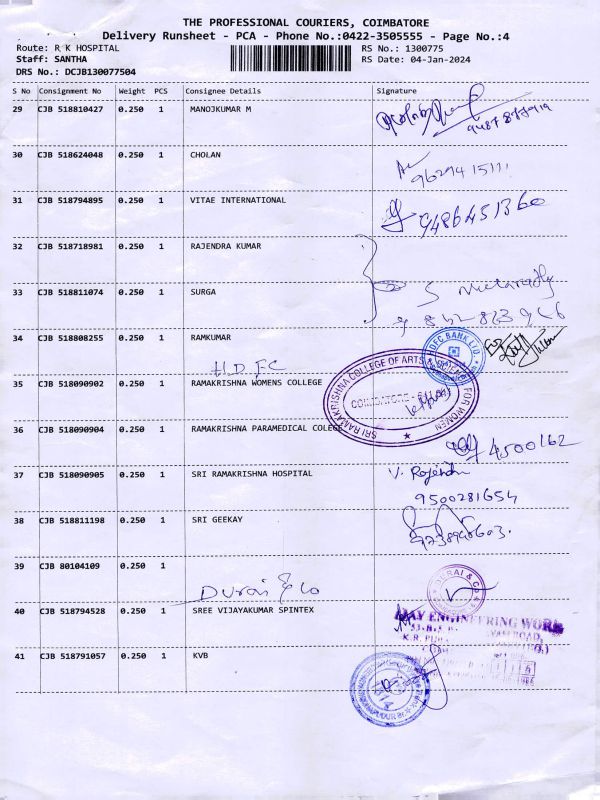 THE PROFESSIONAL COURIERS, COIMBATORE
Delivery Runsheet - PCA - Phone No.:0422-3505555 - Page No.:4
Route: R K HOSPITAL
RS No.: 1300775
Staff: SANTHA
RS Date: 04-Jan-2024
DRS No.: DCJB130077504
S No Consignment No Weight PCS Consignee Details Signature
29 CJB 518810427 0.250 1 MANOJKUMAR M
30 CJB 518624048 0.250 1 CHOLAN
96294 15111
31 CJB 518794895 0.250 1 VITAE INTERNATIONAL
9486451360
32 CJB 518718981 0.250 1 RAJENDRA KUMAR
33 CJB 518811074 0.250 1 SURGA
34 CJB 518808255 0.250 1 RAMKUMAR
HDFC BANK LTD.
H.D.F.C
35 CJB 518090902 0.250 1 RAMAKRISHNA WOMENS COLLEGE
SRI RAMAKRISHNA COLLEGE OF ARTS & SCIENCE FOR WOMEN
COIMBATORE
36 CJB 518090904 0.250 1 RAMAKRISHNA PARAMEDICAL COLEGE
4500162
37 CJB 518090905 0.250 1 SRI RAMAKRISHNA HOSPITAL
V. Rajendra
9500281654
38 CJB 518811198 0.250 1 SRI GEEKAY
39 CJB 80104109 0.250 1
Durai & Co
DURAI & CO
40 CJB 518794528 0.250 1 SREE VIJAYAKUMAR SPINTEX
ENGINEERING WORK
ROAD,
41 CJB 518791057 0.250 1 KVB